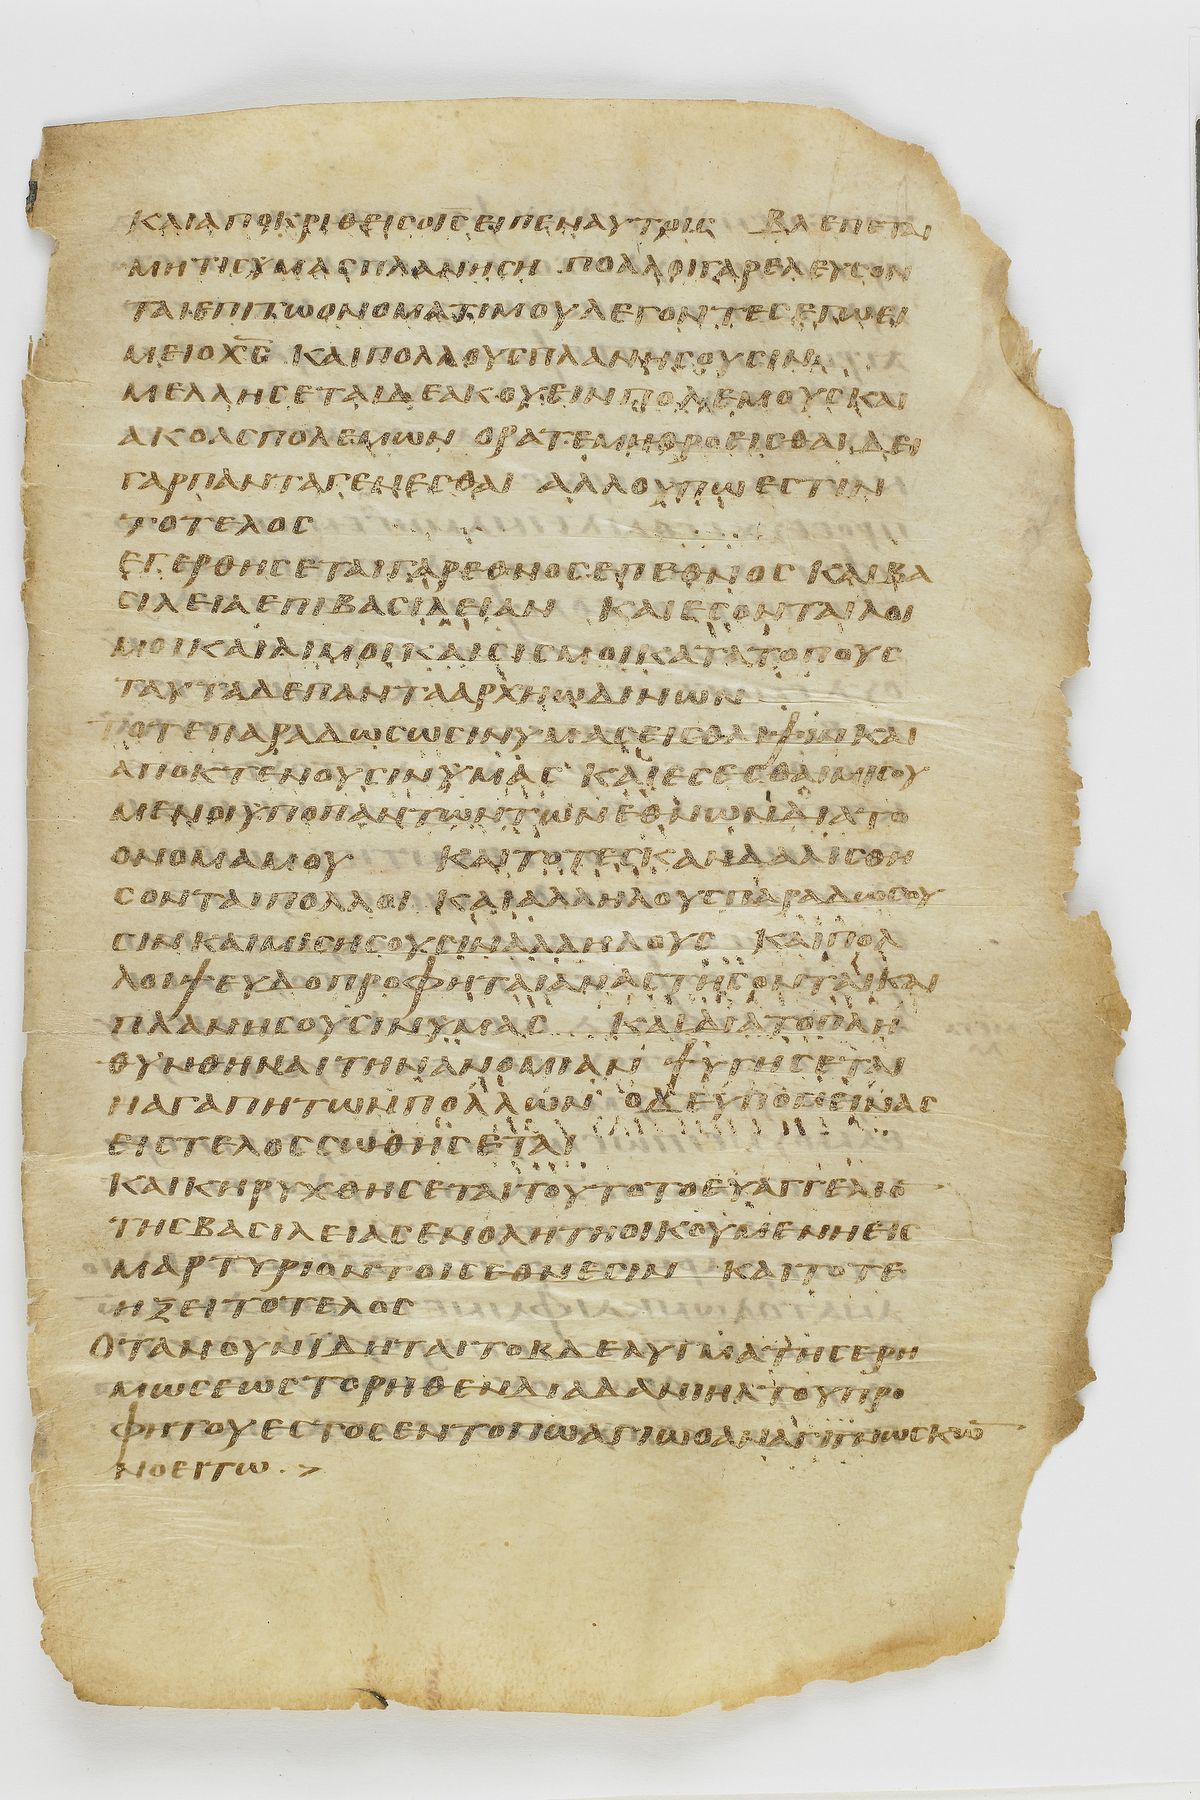 ΚΑΙΑΠΟΚΡΙΘΕΙϹΟΙ̅Ϲ̅ΕΙΠΕΝΑΥΤΟΙϹ ΒΛΕΠΕΤΑΙ
ΜΗΤΙϹΥΜΑϹΠΛΑΝΗϹΗ ΠΟΛΛΟΙΓΑΡΕΛΕΥϹΟΝ
ΤΑΙΕΠΙΤΩΟΝΟΜΑΤΙΜΟΥΛΕΓΟΝΤΕϹΕΓΩΕΙ
ΜΕΙΟΧ̅Ϲ̅ ΚΑΙΠΟΛΛΟΥϹΠΛΑΝΗϹΟΥϹΙΝ
ΜΕΛΛΗϹΕΤΑΙΔΕΑΚΟΥΕΙΝΠΟΛΕΜΟΥϹΚΑΙ
ΑΚΟΑϹΠΟΛΕΜΩΝ ΟΡΑΤΕΜΗΘΡΟΕΙϹΘΑΙΔΕΙ
ΓΑΡΠΑΝΤΑΓΕΝΕϹΘΑΙ ΑΛΛΟΥΠΩΕϹΤΙΝ
ΤΟΤΕΛΟϹ
ΕΓΕΡΘΗϹΕΤΑΙΓΑΡΕΘΝΟϹΕΠΙΕΘΝΟϹ ΚΑΙΒΑ
ϹΙΛΕΙΑΕΠΙΒΑϹΙΛΕΙΑΝ ΚΑΙΕϹΟΝΤΑΙΛΟΙ
ΜΟΙΚΑΙΛΙΜΟΙΚΑΙϹΙϹΜΟΙΚΑΤΑΤΟΠΟΥϹ
ΤΑΥΤΑΔΕΠΑΝΤΑΑΡΧΗΩΔΙΝΩΝ
ΤΟΤΕΠΑΡΑΔΩϹΩϹΙΝΥΜΑϹΕΙϹΘΛΙΨΙΝΚΑΙ
ΑΠΟΚΤΕΝΟΥϹΙΝΥΜΑϹ ΚΑΙΕϹΕϹΘΑΙΜΙϹΟΥ
ΜΕΝΟΙΥΠΟΠΑΝΤΩΝΤΩΝΕΘΝΩΝΔΙΑΤΟ
ΟΝΟΜΑΜΟΥ ΚΑΙΤΟΤΕϹΚΑΝΔΑΛΙϹΘΗ
ϹΟΝΤΑΙΠΟΛΛΟΙ ΚΑΙΑΛΛΗΛΟΥϹΠΑΡΑΔΩϹΟΥ
ϹΙΝΚΑΙΜΙϹΗϹΟΥϹΙΝΑΛΛΗΛΟΥϹ ΚΑΙΠΟΛ
ΛΟΙΨΕΥΔΟΠΡΟΦΗΤΑΙΑΝΑϹΤΗϹΟΝΤΑΙΚΑΙ
ΠΛΑΝΗϹΟΥϹΙΝΥΜΑϹ ΚΑΙΔΙΑΤΟΠΛΗ
ΘΥΝΘΗΝΑΙΤΗΝΑΝΟΜΙΑΝ ΨΥΓΗϹΕΤΑΙ
ΗΑΓΑΠΗΤΩΝΠΟΛΛΩΝ ΟΔΕΥΠΟΜΕΙΝΑϹ
ΕΙϹΤΕΛΟϹϹΩΘΗϹΕΤΑΙ
ΚΑΙΚΗΡΥΧΘΗϹΕΤΑΙΤΟΥΤΟΤΟΕΥΑΓΓΕΛΙΟ̅
ΤΗϹΒΑϹΙΛΕΙΑϹΕΝΟΛΗΤΗΟΙΚΟΥΜΕΝΗΕΙϹ
ΜΑΡΤΥΡΙΟΝΤΟΙϹΕΘΝΕϹΙΝ ΚΑΙΤΟΤΕ
ΗΞΕΙΤΟΤΕΛΟϹ
ΟΤΑΝΟΥΝΙΔΗΤΑΙΤΟΒΔΕΛΥΓΜΑΤΗϹΕΡΗ
ΜΩϹΕΩϹΤΟΡΗΘΕΝΔΙΑΔΑΝΙΗΛΤΟΥΠΡΟ
ΦΗΤΟΥΕϹΤΟϹΕΝΤΟΠΩΑΓΙΩΟΑΝΑΓΙΓΝΩϹΚΩ̅
ΝΟΕΙΤΩ·>